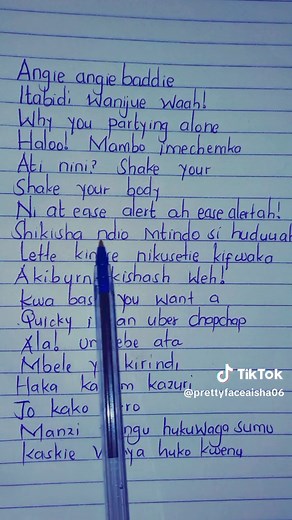 Angie angie baddie
Itabidi wanijue waah!
Why you partying alone
Haloo! Mambo imechemka
Ati nini? Shake your
Shake your body
Ni at ease alert ah ease alertah!
Shikisha ndio mtindo si huduuah
Lette nikusetie kifwaka
Akiburn kishash Weh!
Kwa you want a
Quicky uber chapchap
Ala! ata
Mbele kirindi
Haka kazuri
Jo kako
Manzi hukuwaga sumu
kaskie huko kwenu
TikTok
@prettyfaceaisha06